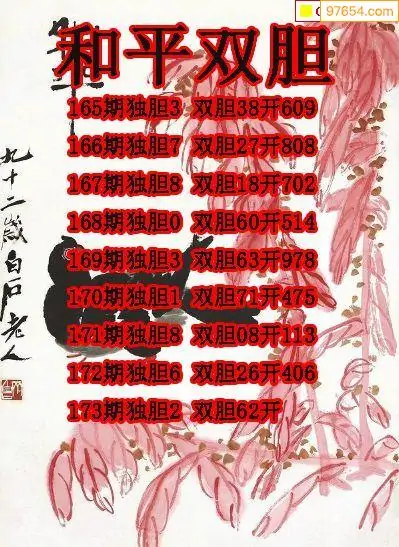 97654.com
和平双胆
165期独胆3 双胆38开609
166期独胆7 双胆27开808
167期独胆8 双胆18开702
168期独胆0 双胆60开514
169期独胆3 双胆63开978
170期独胆1 双胆71开475
171期独胆8 双胆08开113
172期独胆6 双胆26开406
173期独胆2 双胆62开
九十二岁白石老人